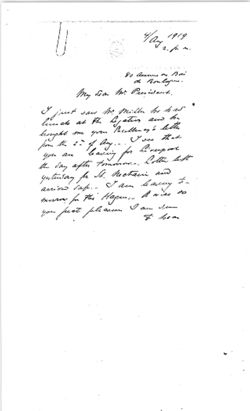 4/Aug 1919
2. p. m.
80 Avenue du Bois
de Boulogne.
My dear Mr. President.
I just saw Mr. Miller he had
lunch at the Legation and he
brought me your Excellency's letter
from the 2nd of Aug... I see that
you are leaving for Liverpool
the day after tomorrow. Cotter left
yesterday for St. Nazaire and
arrived safe. I am leaving to-
morrow for the Hague.
you great pleasure I am sure
to hear